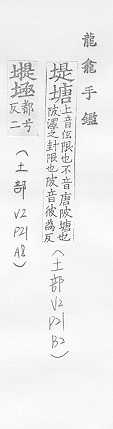 龍龕手鑑
堤塘上音低限也下音唐陂塘也
陂澤之封限也陂音彼為反
(土部 V2 P21 B2)
堤㙺都奚
反二
(土部 V2 P21 A8)